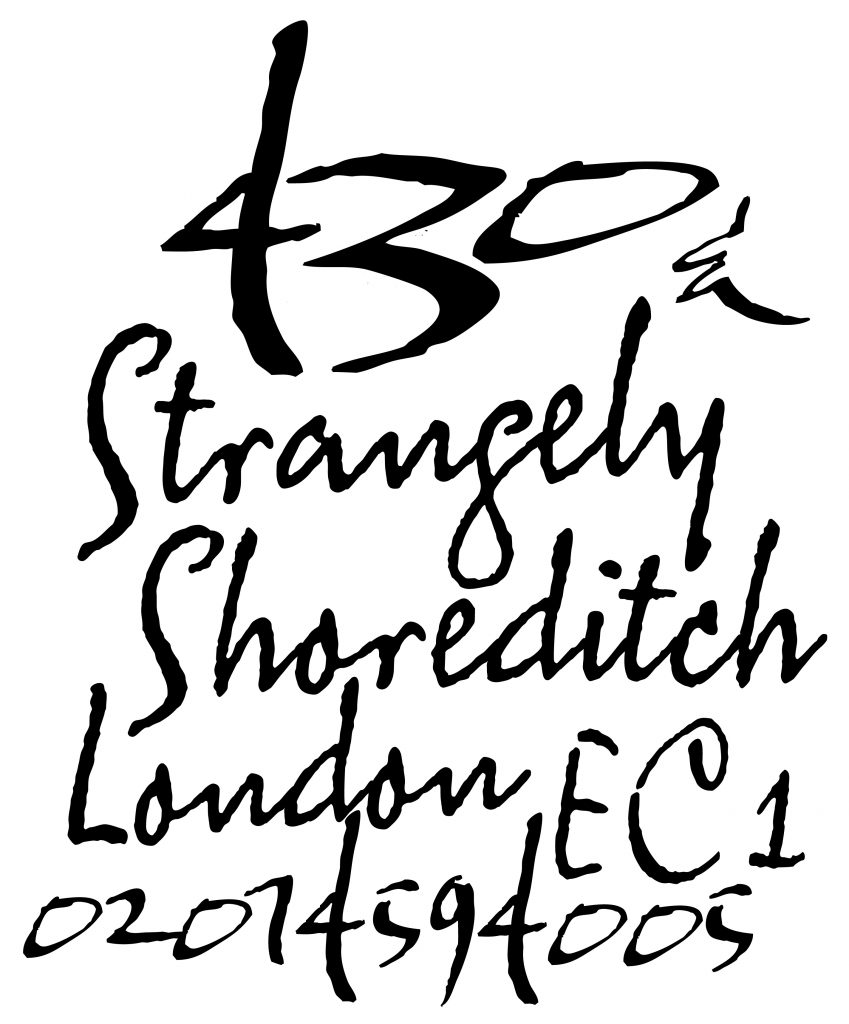 430 &
Strangely
Shoreditch
London EC1
02074594005